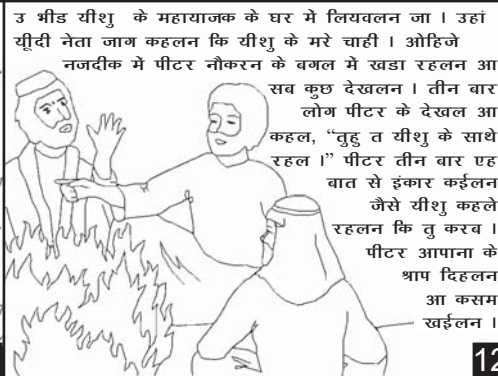 उ भीड यीशु के महायाजक के घर में लियवलन जा । उहां
यूीदी नेता जाग कहलन कि यीशु के मरे चाही । ओहिजे
नजदीक में पीटर नौकरन के बगल में खडा रहलन आ
सब कुछ देखलन । तीन बार
लोग पीटर के देखल आ
कहल, “तुहु त यीशु के साथे
रहल ।” पीटर तीन बार एह
बात से इंकार कईलन
जैसे यीशु कहले
रहलन कि तु करब ।
पीटर आपाना के
श्राप दिहलन
आ कसम
खईलन ।
12